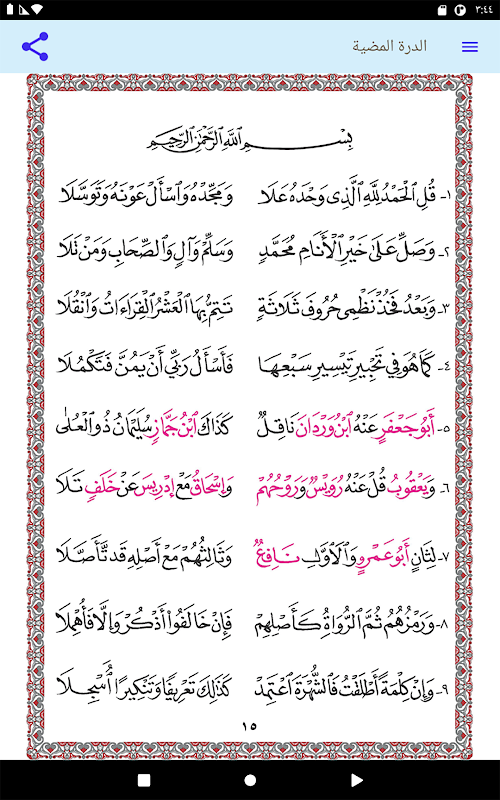 ٣:٤٤
الدرة المضية
بِسْمِ ٱللَّهِ ٱلرَّحْمَٰنِ ٱلرَّحِيمِ
١- قُلِ ٱلْحَمْدُ لِلَّهِ ٱلَّذِي وَحْدَهُ عَلَا وَمَجِّدْهُ وَٱسْأَلْ عَوْنَهُ وَتَوَسَّلَا
٢- وَصَلِّ عَلَى خَيْرِ ٱلْأَنَامِ مُحَمَّدٍ وَسَلِّمْ وَآلٍ وَٱلصِّحَابِ وَمَنْ تَلَا
٣- وَبَعْدُ فَخُذْ نَظْمِي حُرُوفَ ثَلَاثَةٍ تَتِمُّ بِهَا ٱلْعَشْرُ ٱلْقِرَاءَاتُ وَٱنْقُلَا
٤- كَمَا هُوَ فِي تَحْبِيرِ تَيْسِيرِ سَبْعِهَا فَأَسْأَلُ رَبِّي أَنْ يَمُنَّ فَتَكْمُلَا
٥- أَبُو جَعْفَرٍ عَنْهُ ٱبْنُ وَرْدَانَ نَاقِلٌ كَذَاكَ ٱبْنُ جَمَّازٍ سُلَيْمَانُ ذُو ٱلْعُلَى
٦- وَيَعْقُوبُ قُلْ عَنْهُ رُوَيْسٌ وَرَوْحُهُمْ وَإِسْحَاقُ مَعْ إِدْرِيسَ عَنْ خَلَفٍ تَلَا
٧- لِثَانٍ أَبُو عَمْرٍو وَٱلَاوَّلِ نَافِعٌ وَثَالِثُهُمْ مَعْ أَصْلِهِ قَدْ تَأَصَّلَا
٨- وَرَمْزُهُمُ ثُمَّ ٱلرُّوَاةُ كَأَصْلِهِمْ فَإِنْ خَالَفُوا۟ أَذْكُرْ وَإِلَّا فَأُهْمِلَا
٩- وَإِنْ كِلْمَةً أَطْلَقْتُ فَٱلشُّهْرَةَ ٱعْتَمِدْ كَذَلِكَ تَعْرِيفًا وَتَنْكِيرًا ٱُسْجِلَا
١٥